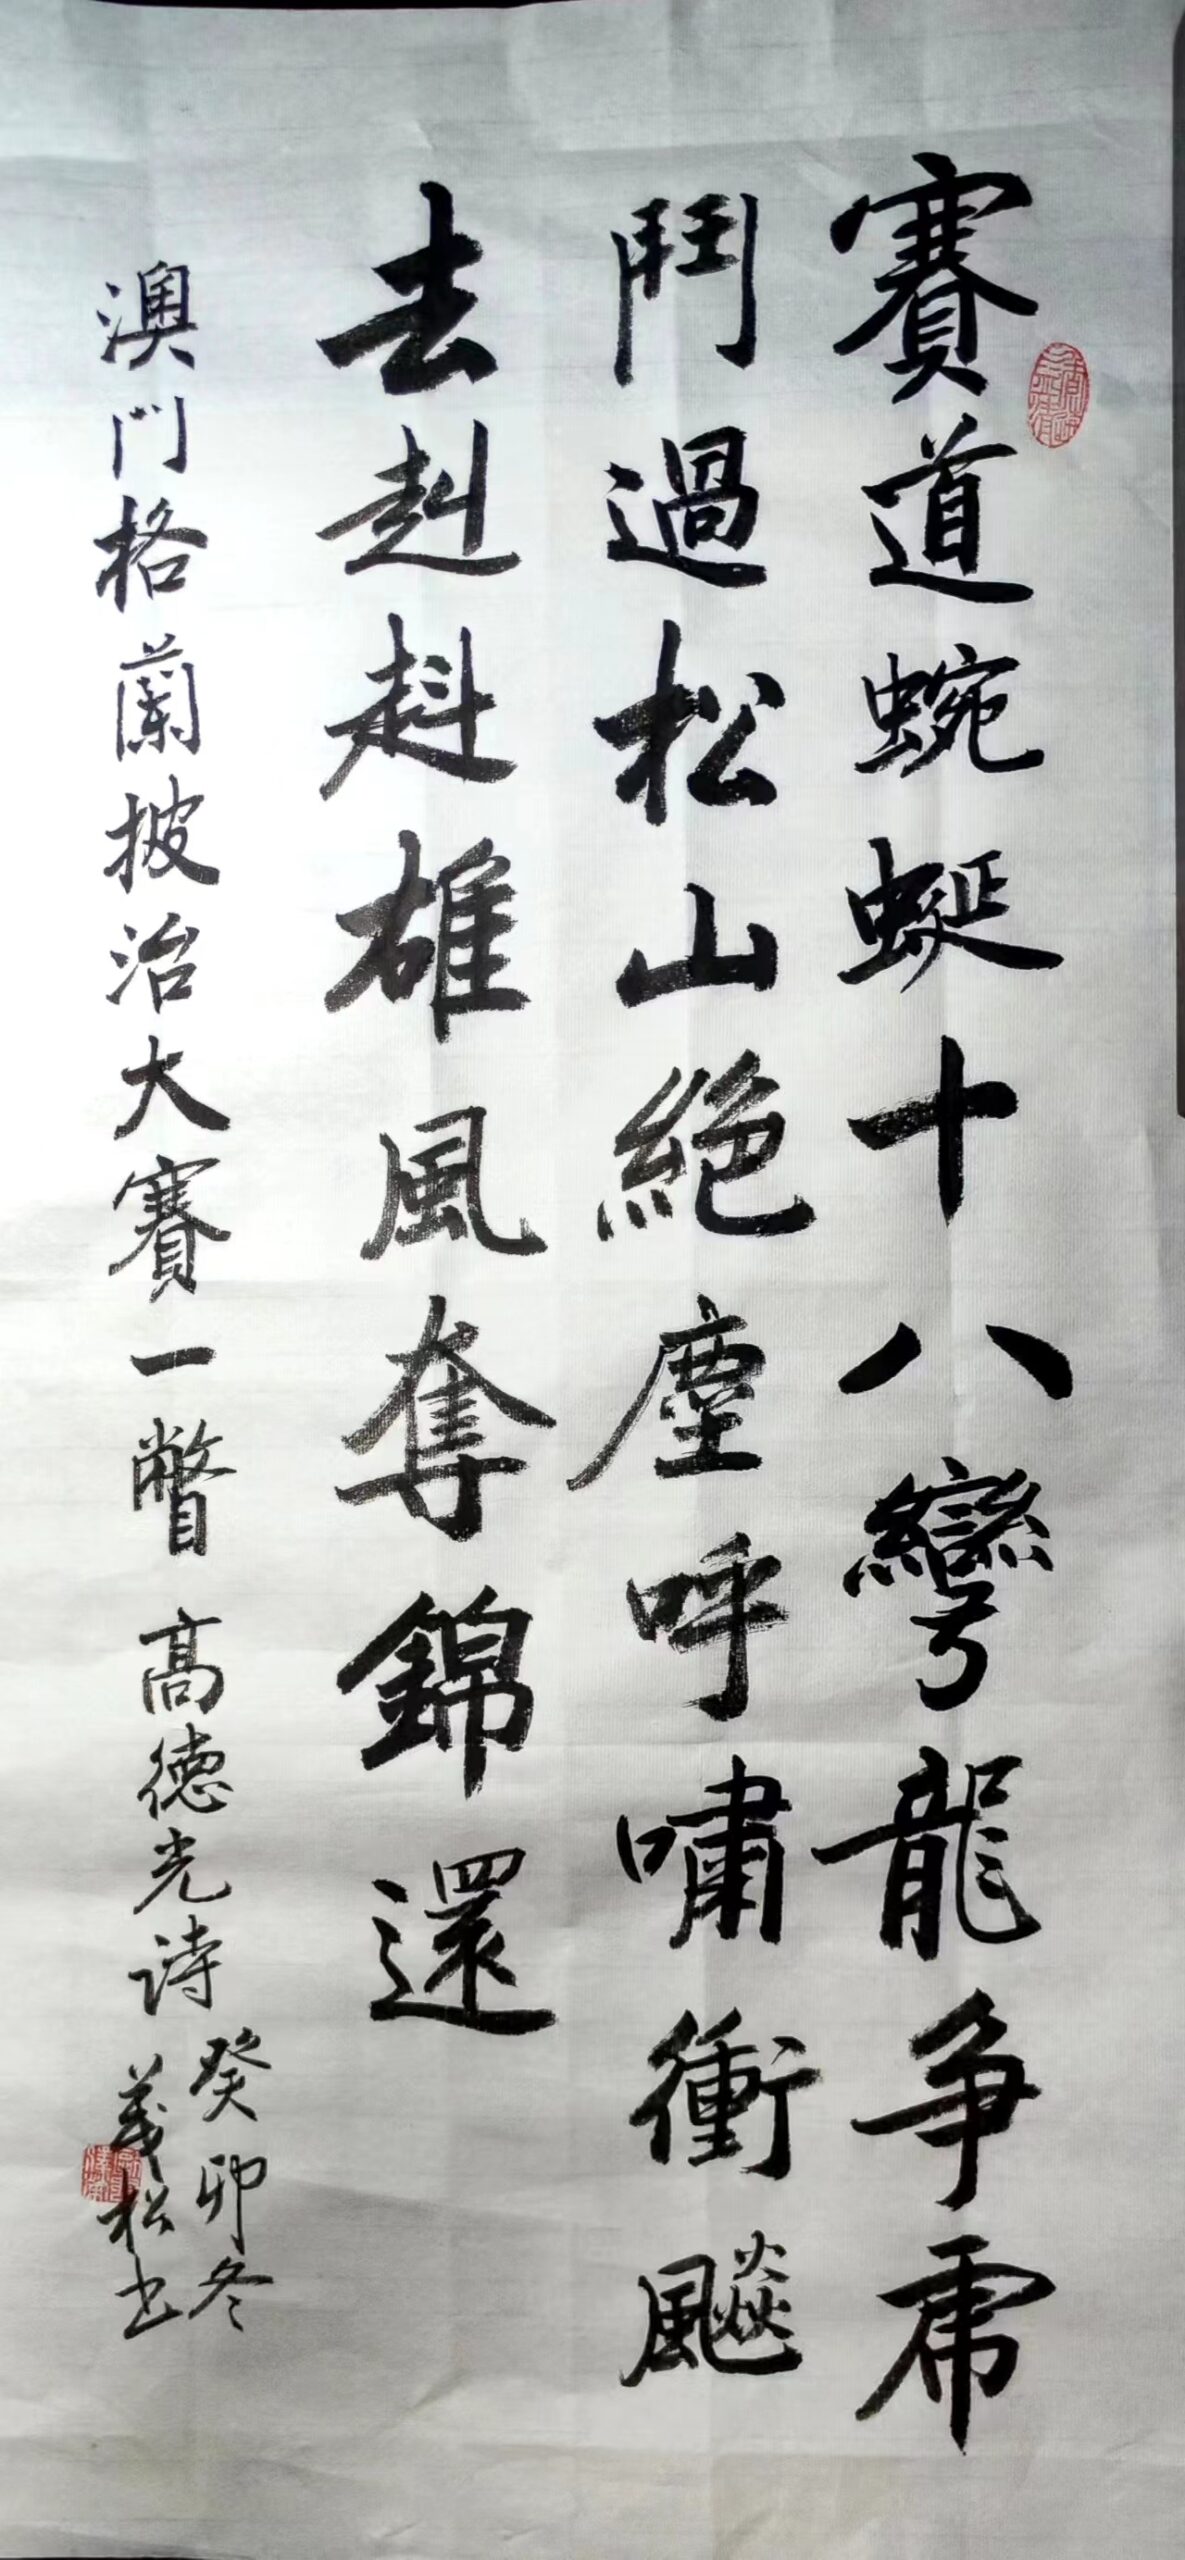 賽道蜿蜒十八彎龍争虎
鬥過松山絕塵呼嘯衝飈
去赳赳雄風奪錦還
澳門格蘭披治大賽一瞥 高德光詩
癸卯冬
義松书